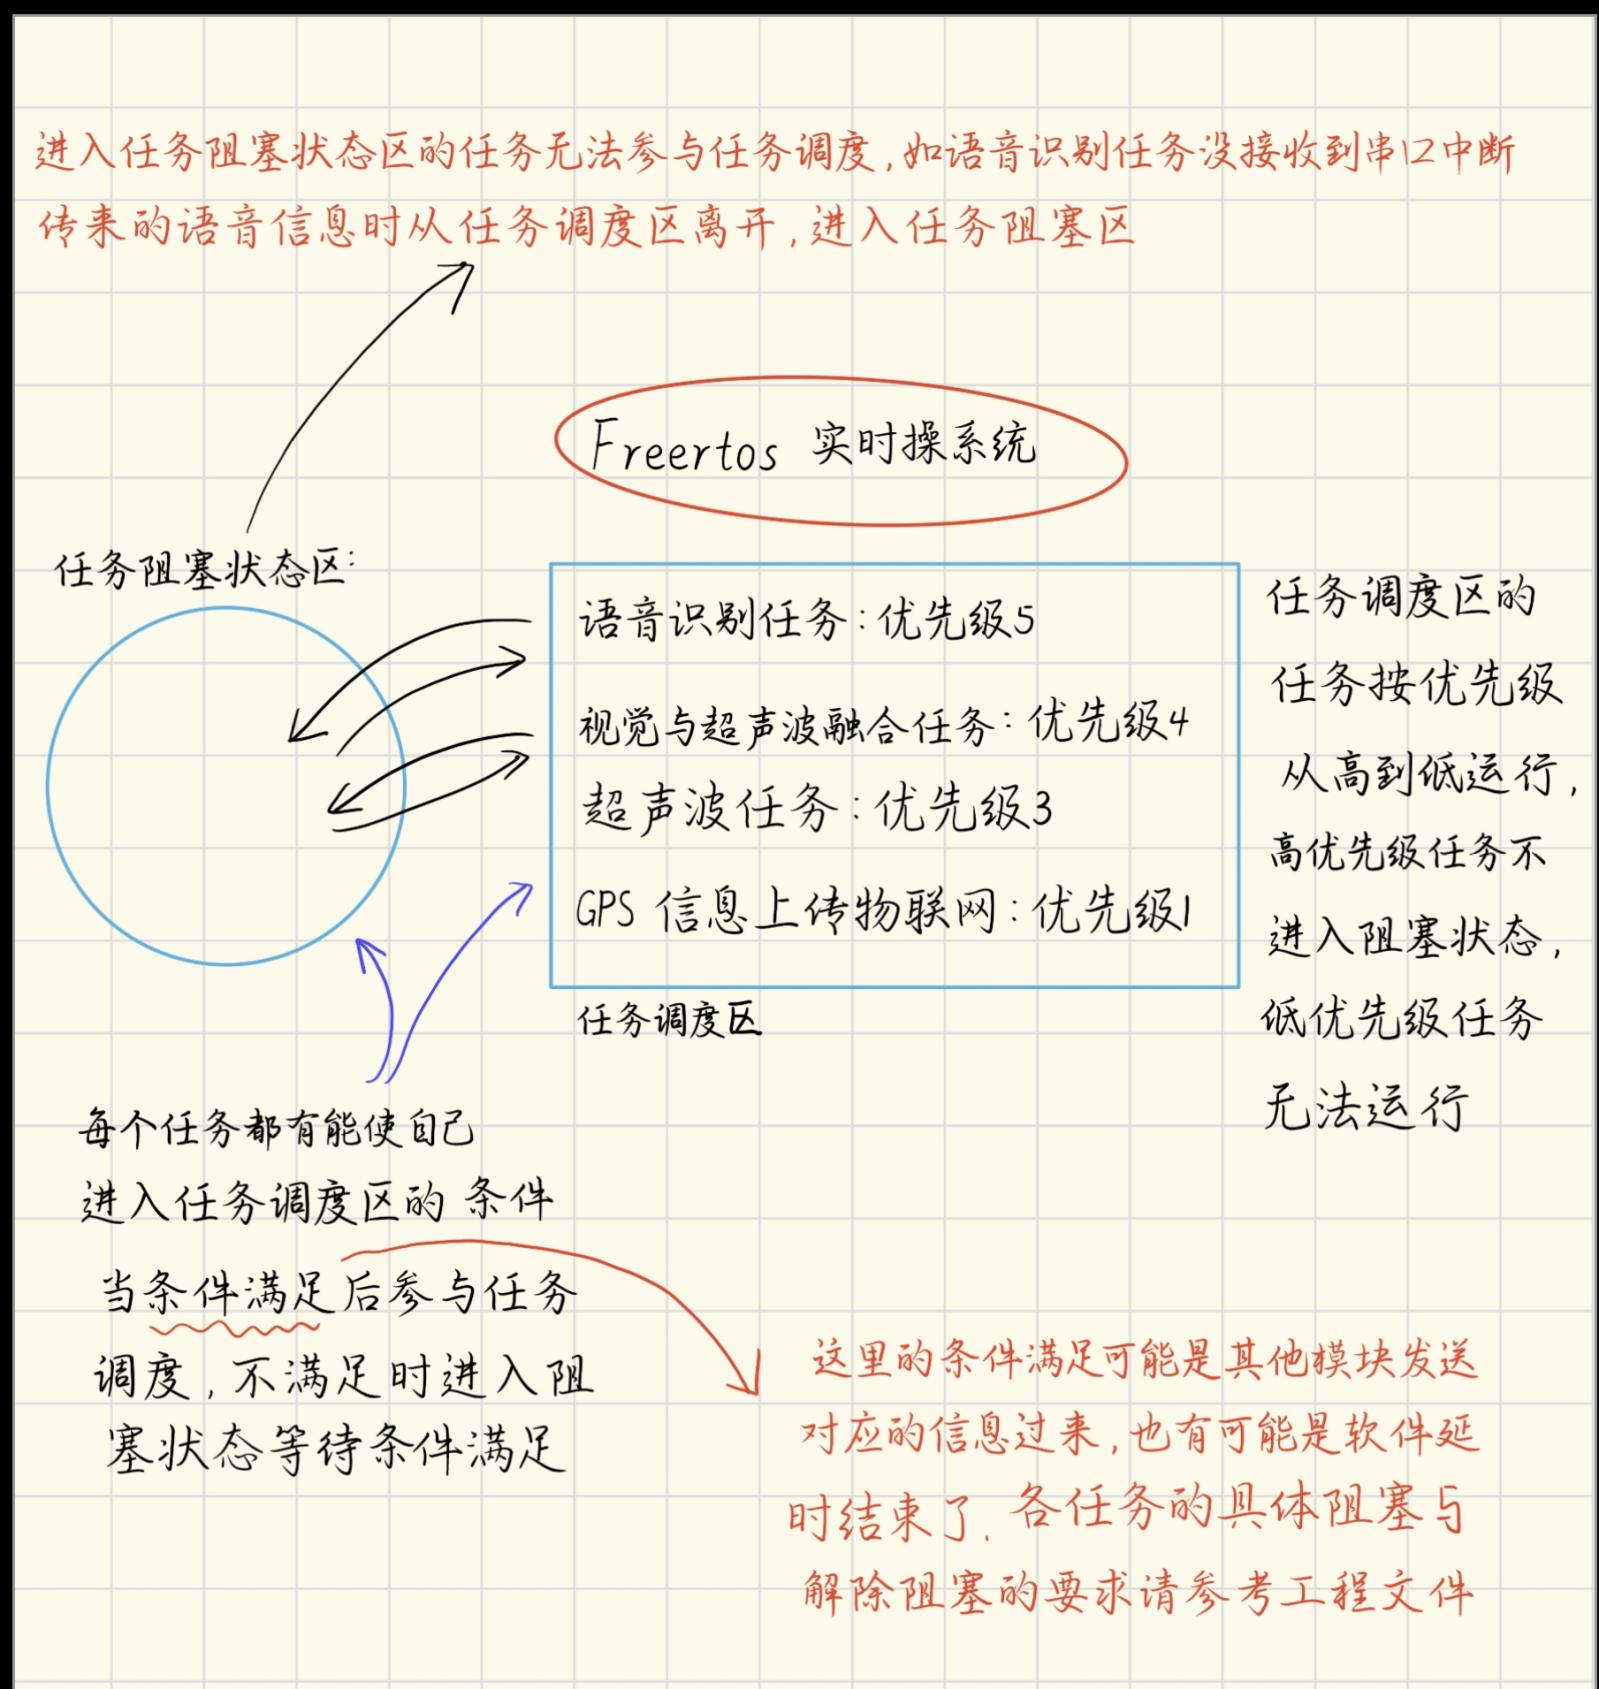 进入任务阻塞状态区的任务无法参与任务调度,如语音识别任务没接收到串口中断
传来的语音信息时从任务调度区离开,进入任务阻塞区
Freertos 实时操系统
任务阻塞状态区:
语音识别任务:优先级5
视觉与超声波融合任务:优先级4
超声波任务:优先级3
GPS 信息上传物联网:优先级1
任务调度区
任务调度区的
任务按优先级
从高到低运行,
高优先级任务不
进入阻塞状态,
低优先级任务
无法运行
每个任务都有能使自己
进入任务调度区的 条件
当条件满足后参与任务
调度,不满足时进入阻
塞状态等待条件满足
这里的条件满足可能是其他模块发送
对应的信息过来,也有可能是软件延
时结束了. 各任务的具体阻塞与
解除阻塞的要求请参考工程文件